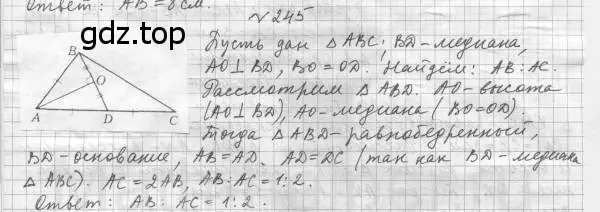 Ответ: AB = 8 см.
№ 245
www.gdz.top
Пусть дан △ ABC; BD - медиана,
AO ⊥ BD, BO = OD. Найдём: AB : AC.
Рассмотрим △ ABD. AO - высота
(AO ⊥ BD), AO - медиана (BO = OD).
Тогда △ ABD - равнобедренный,
BD - основание, AB = AD. AD = DC (так как BD - медиана
△ ABC). AC = 2AB, AB : AC = 1 : 2.
Ответ: AB : AC = 1 : 2.
B
O
A
D
C